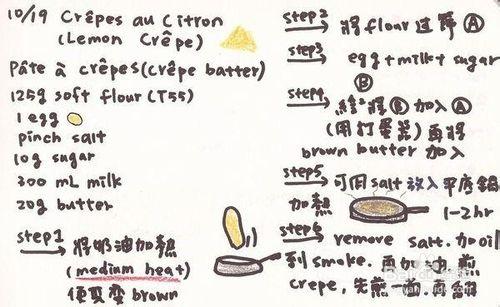 10/19 Crêpes au Citron
(Lemon Crêpe)
Pâte à crêpes (crêpe batter)
125g soft flour (T55)
1 egg
pinch salt
10g sugar
300 mL milk
20g butter
step1 將奶油加熱
(medium heat)
使其變 brown
step2 將 flour 过篩 Ⓐ
step3 egg+milk+sugar
Ⓑ
step4 將Ⓑ加入Ⓐ
(用打蛋器) 再將
brown butter 加入
step5 可用 salt 放入平底鍋
加熱 1-2hr
step6 remove salt. 加 oil
到 smoke. 再加油 煎
crepe, 先煎一面